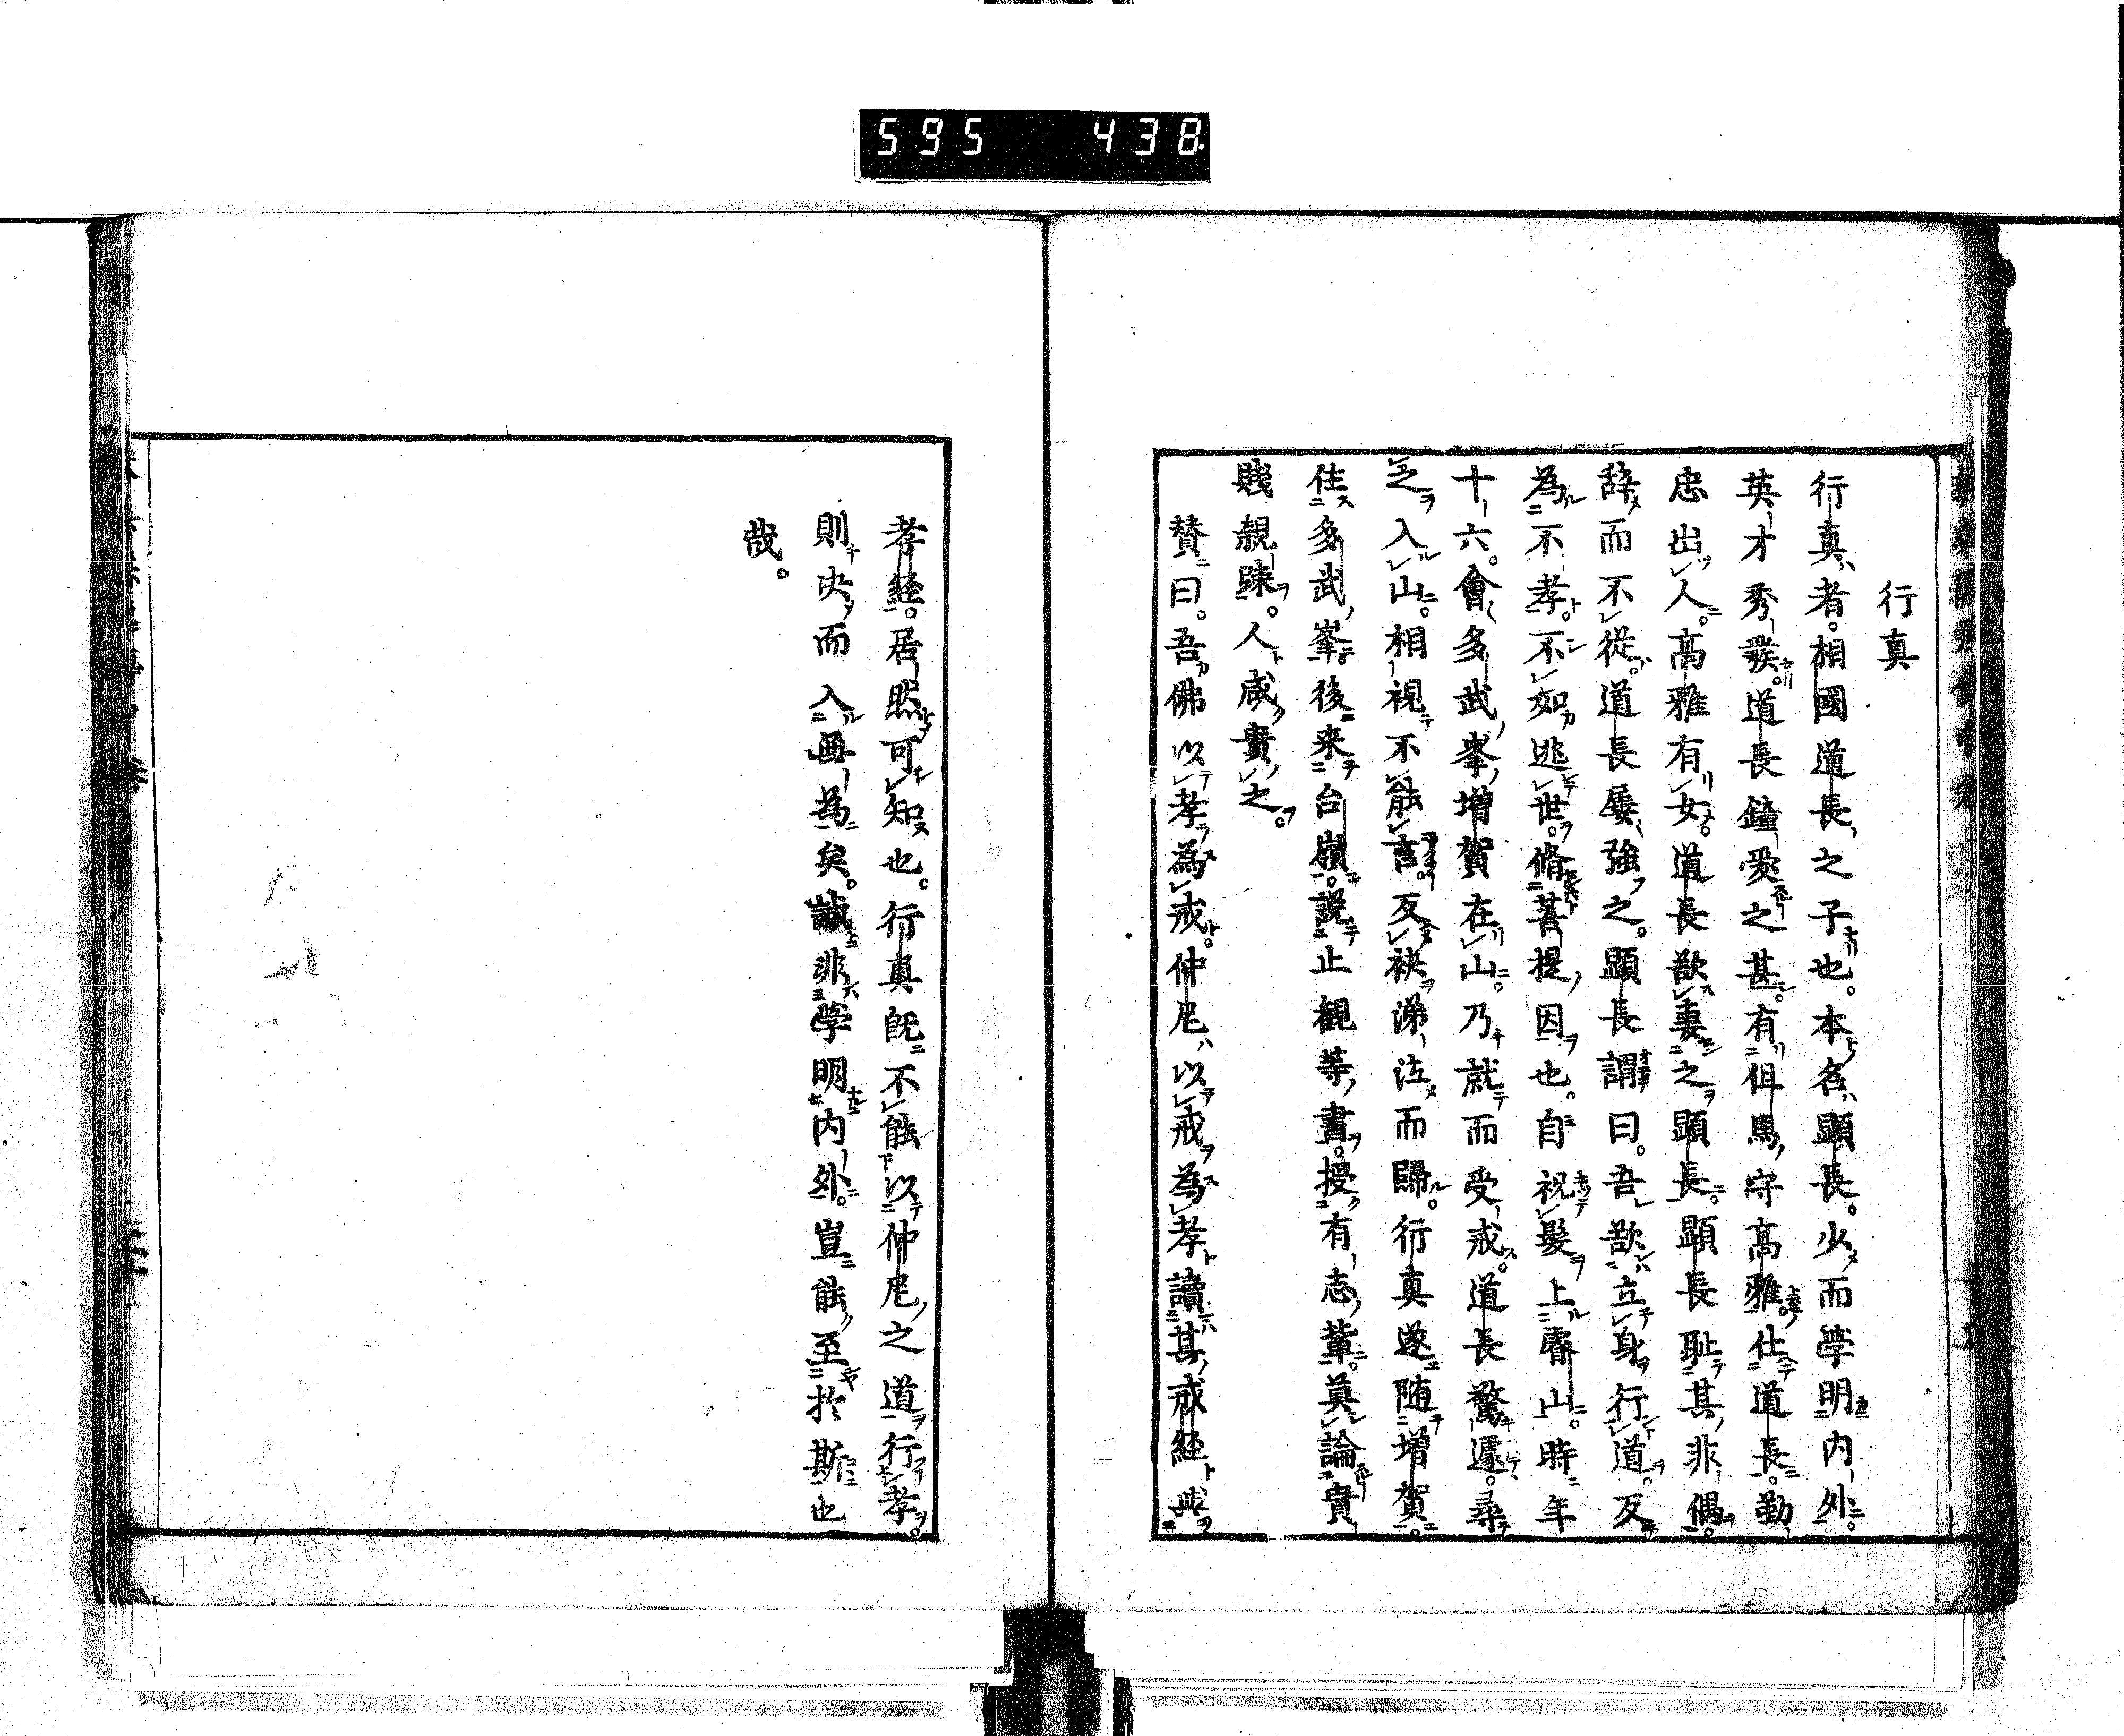 595 438
行真
行真者。相國道長之子也。本名顕長。少而學明内外。
英才秀發。道長鐘愛之甚。有但馬守高雅。仕道長。勤
忠出人。高雅有女。道長欲妻之顕長。顕長耻其非偶。
辞而不從。道長屡強之。顕長謂曰。吾欲立身行道。反
為不孝。不如逃世。脩菩提因也。自祝髪上睿山。時年
十六。會多武峯増賀在山。乃就而受戒。道長驚遽。尋
之入山。相視不能言。反袂涕泣而歸。行真遂随増賀。
住多武峯。後来台嶺。説止觀等書。授有志輩。莫論貴
賤親踈。人咸貴之。
賛曰。吾佛以孝為戒。仲尼以戒為孝。讀其戒経與
孝経。居然可知也。行真既不能以仲尼之道行孝。
則決而入無為矣。誠非學明内外。豈能至於斯也
哉。